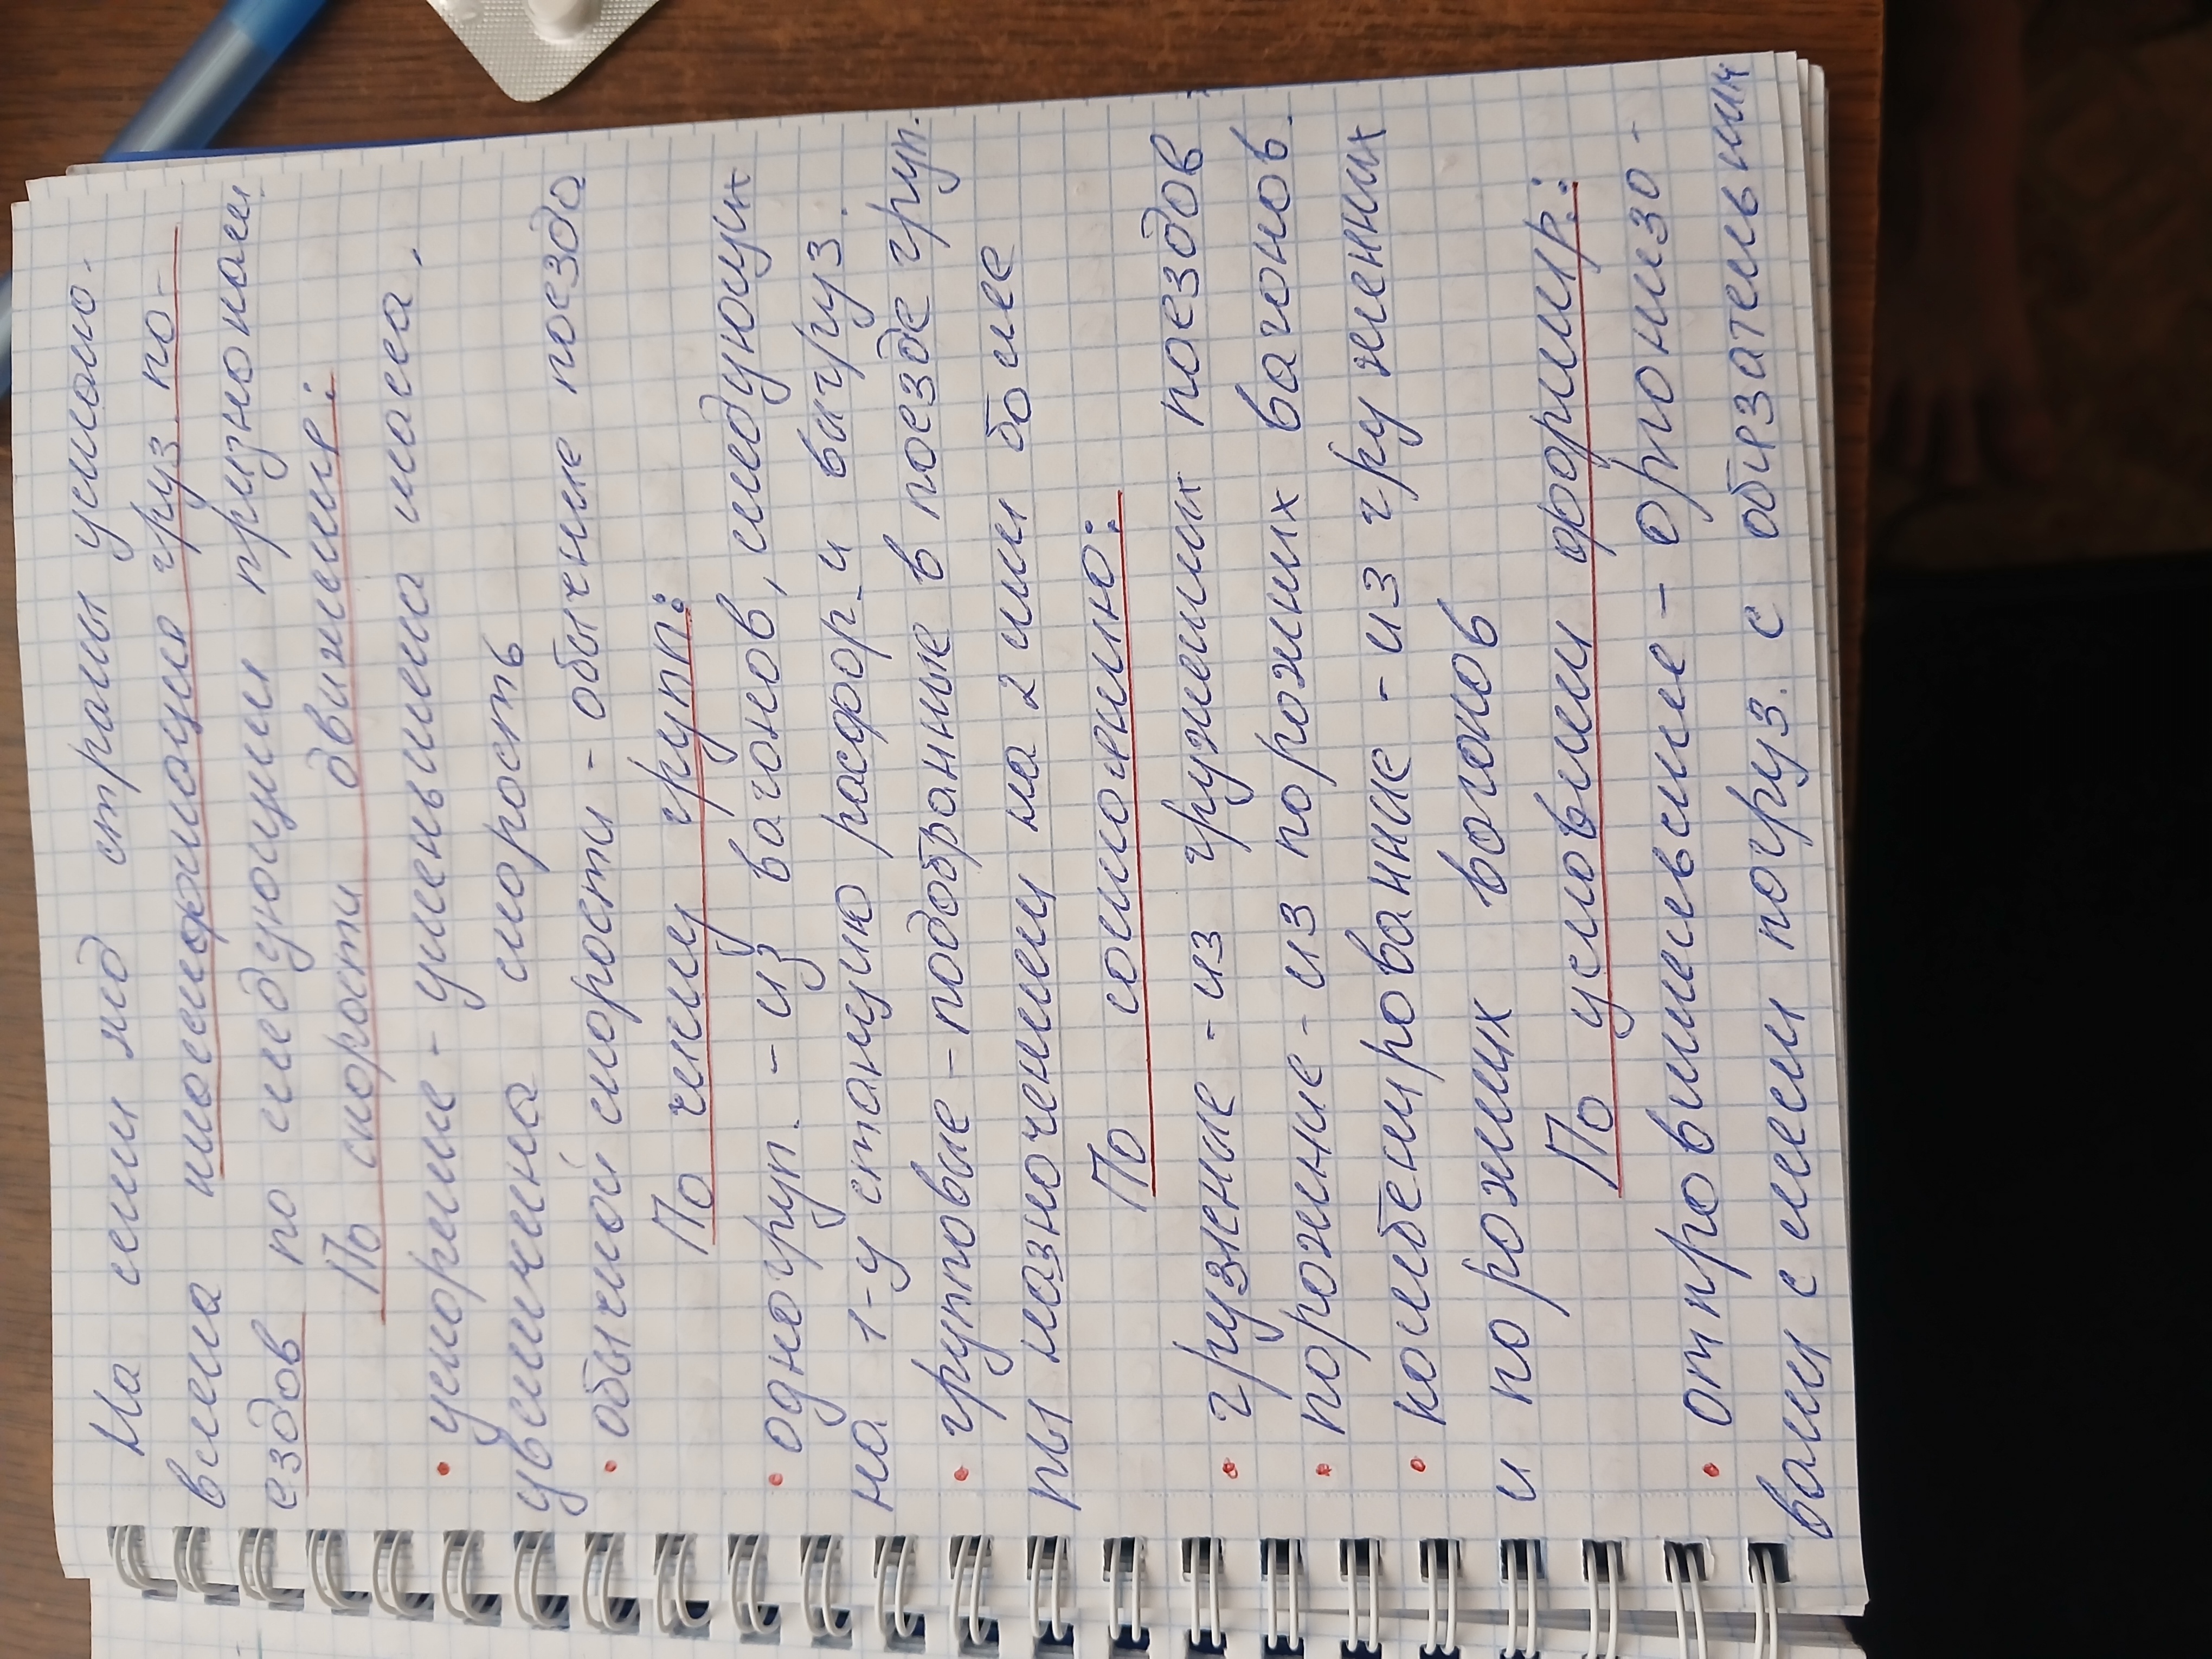 На сети жд страны устано-
влена классификация груз. по-
ездов по следующим признакам.
По скорости движения:
• ускорение - уменьшена масса,
увеличена скорость
• обычной скорости - обычние поезда
По числу групп:
• одногруп. - из вагонов, следующих
на 1-у станцию расфор. и выгруз.
• групповые - подобранные в поезде груп.
пы назначением на 2 или более
По состоянию:
• груженые - из груженых поездов
• порожние - из порожних вагонов.
• комбенированние - из груженных
и порожних вагонов
По условиям формир.:
• отправительские - организо-
вани с мест погруз. с обязательним